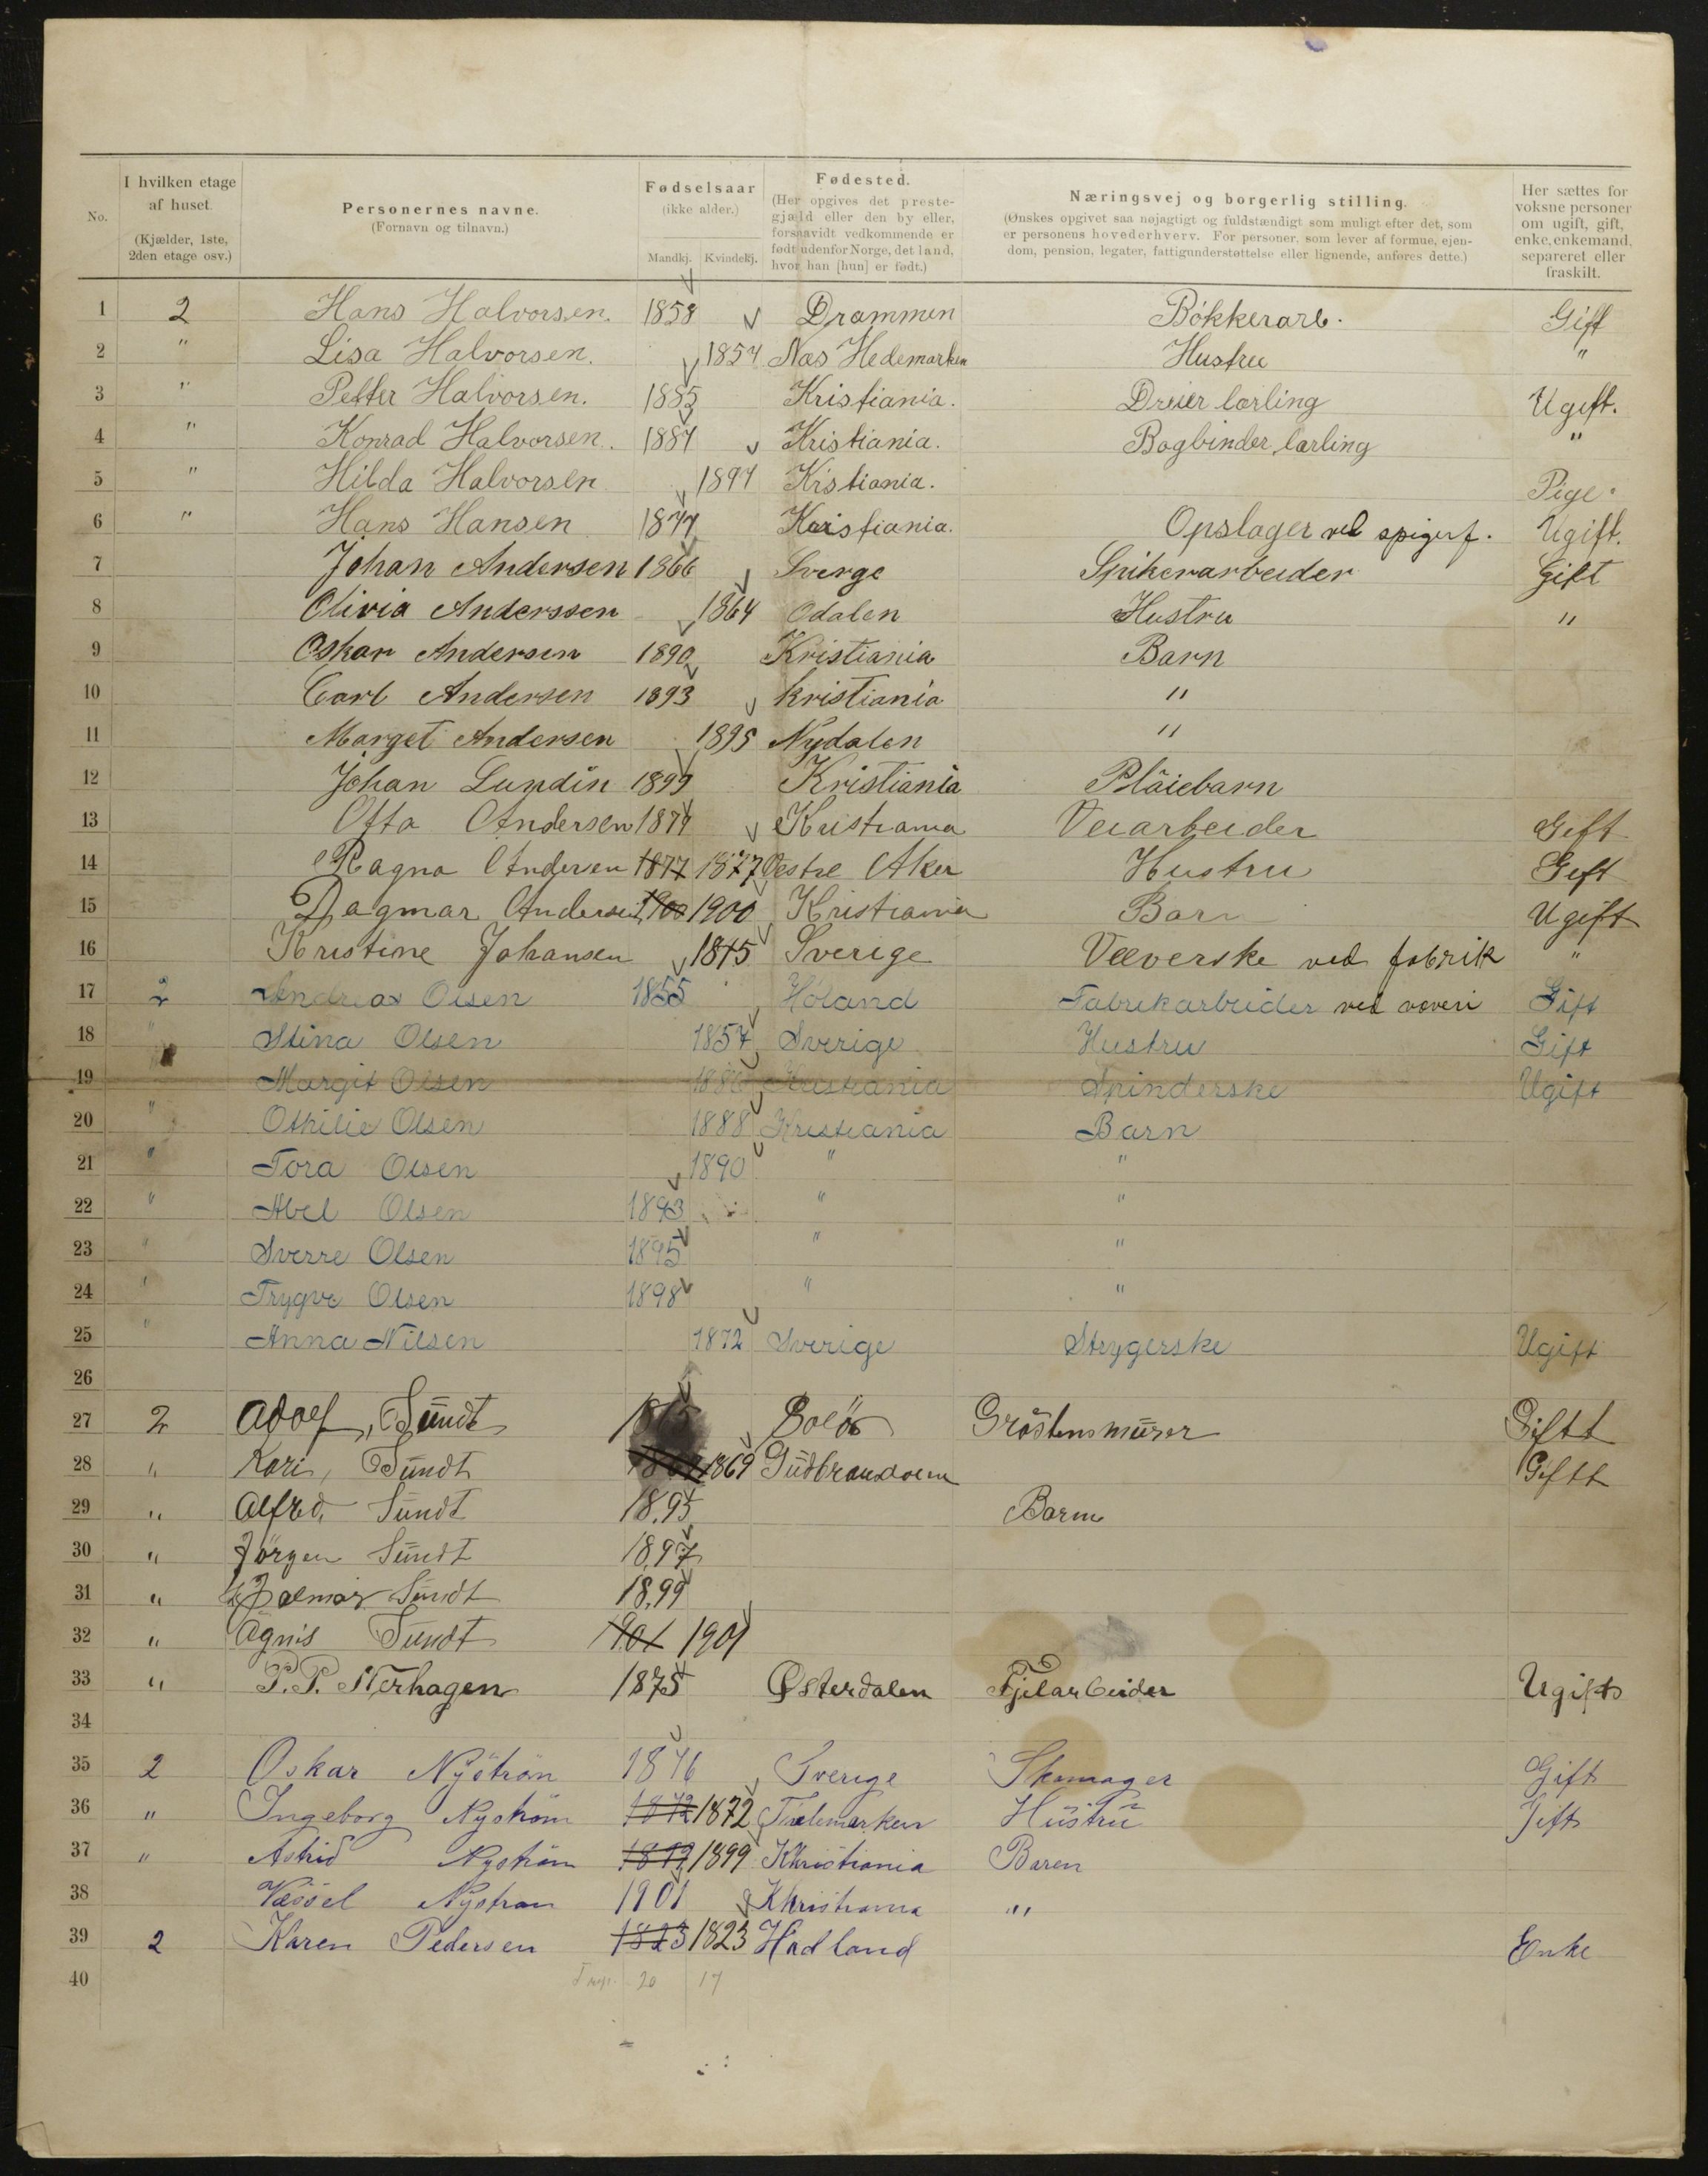 No. | I hvilken etage af huset. (Kjælder, 1ste, 2den etage osv.) | Personernes navne. (Fornavn og tilnavn.) | Fødselsaar (ikke alder.) Mandkj. Kvindekj. | Fødested. (Her opgives det prestegjæld eller den by eller, forsaavidt vedkommende er født udenfor Norge, det land, hvor han [hun] er født.) | Næringsvej og borgerlig stilling. (Ønskes opgivet saa nøjagtigt og fuldstændigt som muligt efter det, som er personens hovederhverv. For personer, som lever af formue, ejendom, pension, legater, fattigunderstøttelse eller lignende, anføres dette.) | Her sættes for voksne personer om ugift, gift, enke, enkemand, separeret eller fraskilt.
1 2 Hans Halvorsen. 1858 Drammen Bókkerarb. Gift
2 " Lisa Halvorsen. 1854 Næs Hedemarken Hustru "
3 " Petter Halvorsen. 1885 Kristiania. Dreier lærling Ugift.
4 " Konrad Halvorsen. 1887 Kristiania. Bogbinder lærling "
5 " Hilda Halvorsen 1897 Kristiania. Pige.
6 " Hans Hansen 1877 Kristiania. Opslager ved spigerf. Ugift.
7 Johan Andersen 1866 Sverge Spikerarbeider Gift
8 Olivia Anderssen 1864 Odalen Hustru "
9 Oskar Andersen 1890 Kristiania Barn
10 Carl Andersen 1893 Kristiania "
11 Marget Andersen 1895 Nydalen "
12 Johan Lundin 1899 Kristiania Pläiebarn
13 Otto Andersen 1874 Kristiania Veiarbeider Gift
14 Ragna Andersen 1877 1877 Vestre Aker Hustru Gift
15 Dagmar Andersen 1900 1900 Kristiania Barn Ugift
16 Kristine Johansen 1875 Sverige Væverske ved fabrik "
17 2 Andreas Olsen 1855 Høland Fabrikarbeider ved væveri Gift
18 " Stina Olsen 1857 Sverige Hustru Gift
19 Margit Olsen Kristiania Spinderske Ugift
20 " Othilie Olsen 1888 Kristiania Barn
21 " Tora Olsen 1890 " "
22 " Abel Olsen 1893 " "
23 " Sverre Olsen 1895 " "
24 " Trygve Olsen 1898 " "
25 " Anna Nilsen 1872 Sverige Strygerske Ugift
26
27 2 Adolf, Sundt Solör Gröstensmurer Giftt
28 " Kari, Sundt 1869 Gudbransdolen Giftt
29 " Alfred, Sundt 18.95 Barn
30 " Jörgen Sundt 18.97
31 " Hjalmar Sundt 18.99
32 " Agnis Sundt 1901 1901
33 " P.P. Nerhagen 1875 Østerdalen Fjelarbeider Ugift
34
35 2 Oskar Nyström 1876 Sverige Skomager Gift
36 " Ingeborg Nyström 1872 1872 Thelemarken Hustru Gift
37 " Astrid Nyström 1899 Khristiania Baren
38 Nyström 1901 Khristiania "
39 2 Karen Pedersen 1823 1823 Hadland Enke
40 20 17